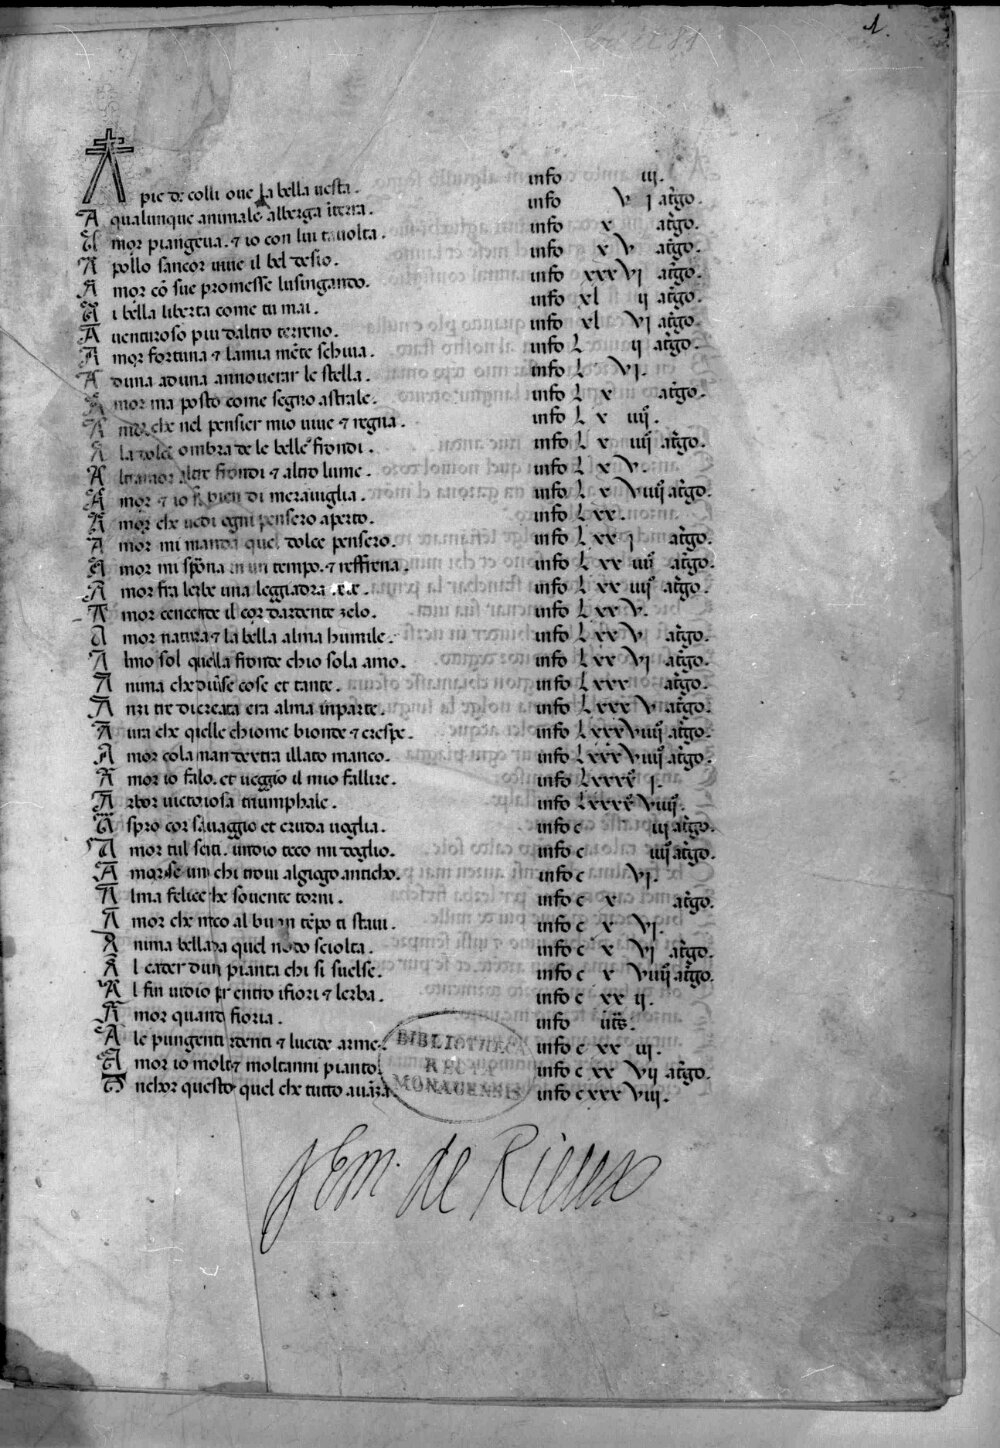 1.
A pie de colli oue la bella uesta. info iij.
A qualunque animale alberga ĩterra. info vj at̃go.
A mor piangeua. ⁊ io con lui tauolta. info x at̃go.
A pollo sancor uiue il bel desio. info xv at̃go.
A mor cõ sue promesse lusingando. info xxxvj at̃go.
A i bella liberta come tu mai. info xl ij at̃go.
A uenturoso piu daltro terreno. info xl vj at̃go.
A mor fortuna ⁊ lamia mẽte schiua. info l ij at̃go.
A duna aduna annouerar le stella. info l vj.
A mor ma posto come segno astrale. info l x at̃go.
A mor che nel pensier mio uiue ⁊ regna. info l x iiij.
A la dolce ombra de le belle frondi. info l x iiij at̃go.
A ltramor altre frondi ⁊ altro lume. info l x v.
A mor ⁊ io si pien di merauiglia. info l x viiij at̃go.
A mor che uedi ogni pensero aperto. info l xx.
A mor mi manda quel dolce pensero. info l xx j at̃go.
A mor mi sprona in un tempo. ⁊ reffrena. info l xx iiij at̃go.
A mor fra lerbe una leggiadra rete. info l xx iiij at̃go.
A mor cencende il cor dardente zelo. info l xx v.
A mor natura ⁊ la bella alma humile. info l xx v at̃go.
A lmo sol quella fronde chio sola amo. info l xx vj at̃go.
A nima che diũse cose et tante. info l xxx at̃go.
A nzi tre di creata era alma inparte. info l xxx v at̃go.
A ura che quelle chiome bionde ⁊ crespe. info l xxx viiij at̃go.
A mor cola man dextra illato manco. info l xxx viiij at̃go.
A mor io falo. et ueggio il mio fallire. info l xxxx j.
A rbor uictoriosa triumphale. info l xxxx viiij.
A spro cor sauaggio et cruda uoglia. info c iij at̃go.
A mor tul senti. undio teco mi doglio. info c iiij at̃go.
A mor se uuo chi torni algiogo anticho. info c vj.
A lma felice che souente torni. info c x at̃go.
A mor che meco al buon tẽpo ti staui. info c x vj.
A nima bella da quel nodo sciolta. info c x vj at̃go.
A l cader dun pianta chi si suelse. info c x viiij at̃go.
A l fin uidio per entro ifiori ⁊ lerba. info c xx ij.
A mor quando fioria. info
A le pungenti ardenti ⁊ lucide arme. info c xx iij.
A mor io molte ⁊ moltanni pianto. info c xx vij at̃go.
A nchor questo quel che tutto auãza. info c xxx viij.
BIBLIOTHECA
REGIA
MONACENSIS